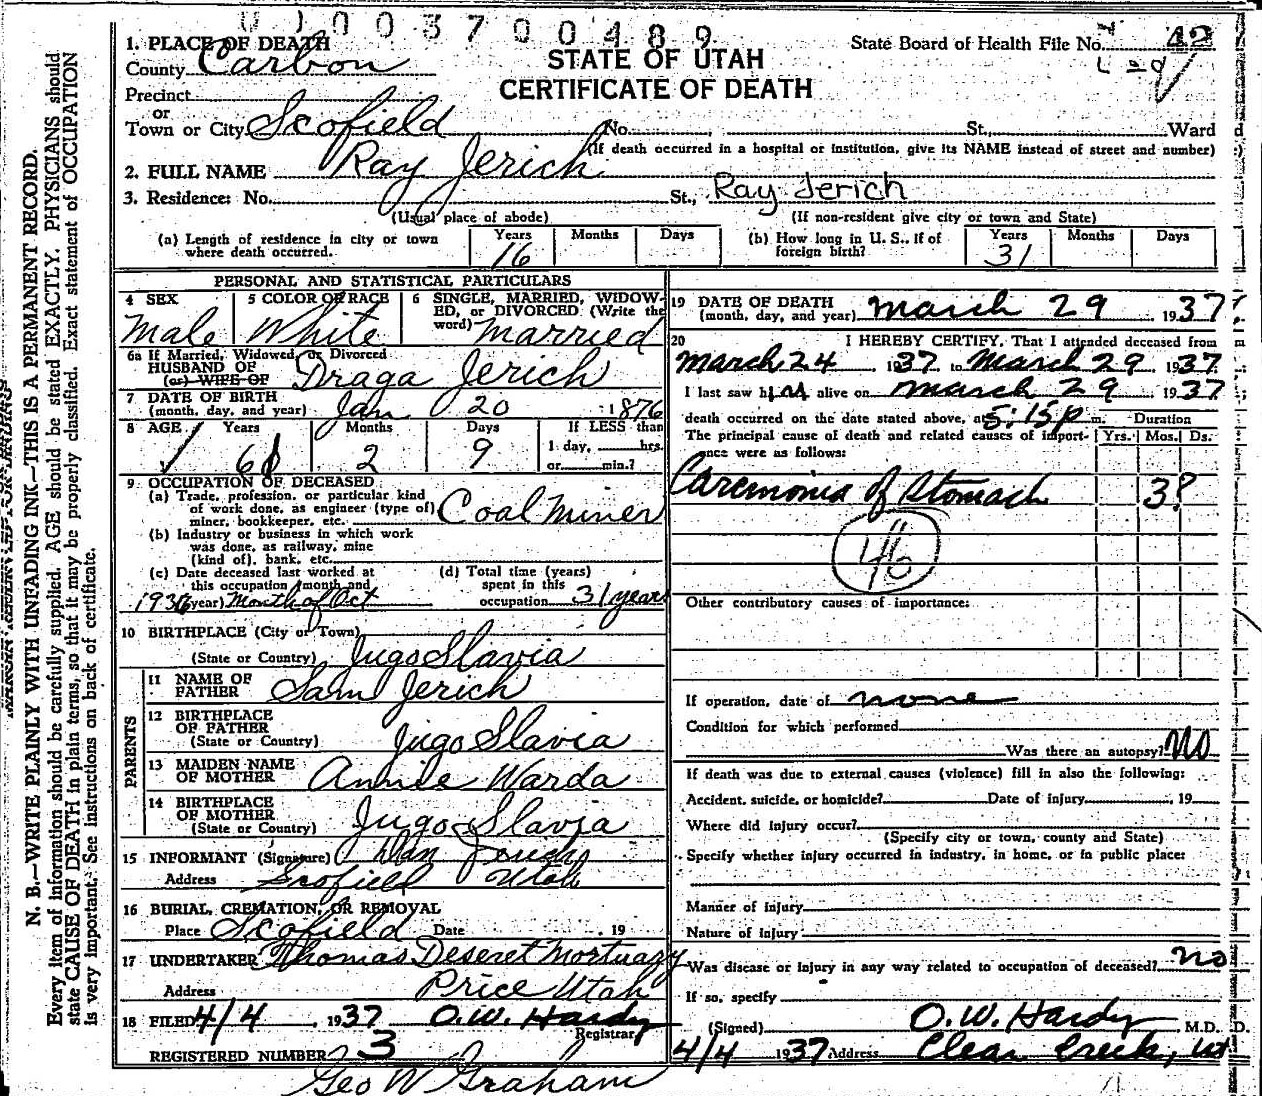 0 1 0 0 3 7 0 0 4 8 9
1. PLACE OF DEATH
County Carbon
STATE OF UTAH
CERTIFICATE OF DEATH
State Board of Health File No. 42
Precinct
or
Town or City Scofield No. St., Ward
(If death occurred in a hospital or institution, give its NAME instead of street and number)
2. FULL NAME Ray Jerich
3. Residence: No. St., Ray Jerich
(Usual place of abode) (If non-resident give city or town and State)
(a) Length of residence in city or town where death occurred. Years 16 Months Days
(b) How long in U. S., if of foreign birth? Years 31 Months Days
PERSONAL AND STATISTICAL PARTICULARS
4 SEX Male
5 COLOR OR RACE White
6 SINGLE, MARRIED, WIDOWED, or DIVORCED (Write the word) Married
6a If Married, Widowed, or Divorced
HUSBAND OF
(or) WIFE OF Draga Jerich
7 DATE OF BIRTH
(month, day, and year) Jan 20 1876
8 AGE Years 61 Months 2 Days 9 If LESS than 1 day, hrs. or min.?
9 OCCUPATION OF DECEASED
(a) Trade, profession, or particular kind of work done, as engineer (type of) miner, bookkeeper, etc. Coal Miner
(b) Industry or business in which work was done, as railway, mine (kind of), bank, etc.
(c) Date deceased last worked at this occupation (month and year) 1936 Month of Oct
(d) Total time (years) spent in this occupation 31 years
10 BIRTHPLACE (City or Town)
(State or Country) Jugo Slavia
PARENTS
11 NAME OF FATHER Sam Jerich
12 BIRTHPLACE OF FATHER
(State or Country) Jugo Slavia
13 MAIDEN NAME OF MOTHER Annie Warda
14 BIRTHPLACE OF MOTHER
(State or Country) Jugo Slavia
15 INFORMANT (Signature) Dan
Address Scofield Utah
16 BURIAL, CREMATION, OR REMOVAL
Place Scofield Date 19
17 UNDERTAKER Thomas Deseret Mortuary
Address Price Utah
18 FILED 4/4, 1937 O.W. Hardy
Registrar
REGISTERED NUMBER 3
Geo W Graham
19 DATE OF DEATH
(month, day, and year) March 29 1937
20 I HEREBY CERTIFY, That I attended deceased from
March 24, 1937 to March 29 1937
I last saw him alive on March 29 1937
death occurred on the date stated above, at 5:15 p m. Duration
The principal cause of death and related causes of importance were as follows: Yrs. Mos. Ds.
Carcmonia of Stomach 3?
46
Other contributory causes of importance:
If operation, date of none
Condition for which performed
Was there an autopsy? No
If death was due to external causes (violence) fill in also the following:
Accident, suicide, or homicide? Date of injury , 19
Where did injury occur?
(Specify city or town, county and State)
Specify whether injury occurred in industry, in home, or in public place:
Manner of injury
Nature of injury
Was disease or injury in any way related to occupation of deceased? no
If so, specify
(Signed) O.W. Hardy M.D.
4/4 1937 Address Clear Creek, Ut
N. B.—WRITE PLAINLY WITH UNFADING INK—THIS IS A PERMANENT RECORD.
Every item of information should be carefully supplied. AGE should be stated EXACTLY. PHYSICIANS should
state CAUSE OF DEATH in plain terms, so that it may be properly classified. Exact statement of OCCUPATION
is very important. See instructions on back of certificate.